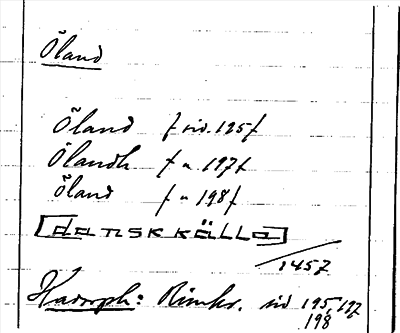 Öland
Öland / sid. 195 /
Ölandh / " 197 /
Öland / " 198 /
[DANSK KÄLLA]
/1457
Hadorph: Rimkr. sid 195, 197,
198